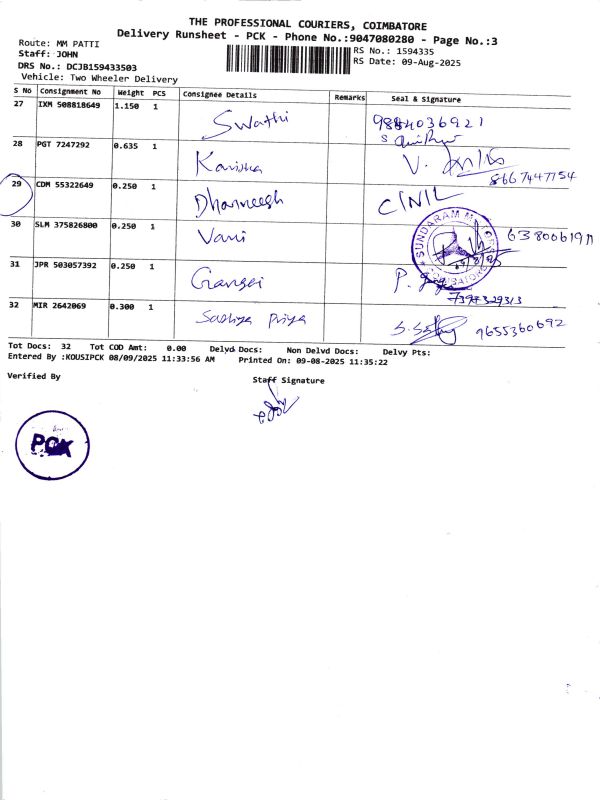 THE PROFESSIONAL COURIERS, COIMBATORE
Delivery Runsheet - PCK - Phone No.:9047080280 - Page No.:3
Route: MM PATTI
Staff: JOHN
RS No.: 1594335
DRS No.: DCJB159433503
RS Date: 09-Aug-2025
Vehicle: Two Wheeler Delivery
S No Consignment No Weight PCS Consignee Details Remarks Seal & Signature
27 IXM 508818649 1.150 1 Swathi
28 PGT 7247292 0.635 1 Kanishka V. 8667447754
29 CDM 55322649 0.250 1 Dharneesh CINIL
30 SLM 375826800 0.250 1 Vani
SUNDARAM MOTORS COIMBATORE
31 JPR 503057392 0.250 1 Gangai P.
32 MIR 2642069 0.300 1 Sathiya Priya 9655360692
Tot Docs: 32 Tot COD Amt: 0.00 Delvd Docs: Non Delvd Docs: Delvy Pts:
Entered By :KOUSIPCK 08/09/2025 11:33:56 AM Printed On: 09-08-2025 11:35:22
Verified By
Staff Signature
PCK